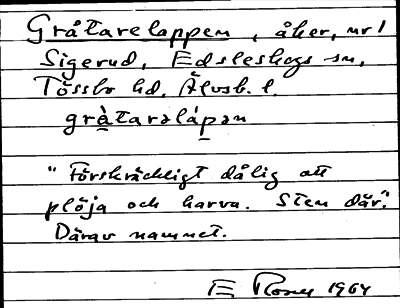 Gråtarelappen, åker, nr 1
Sigerud, Edsleskogs sn,
Tössbo hd. Älvsb. l.
gràtarəlápən
"Förskräckligt dålig att
plöja och harva. Sten där."
Därav namnet.
E Rosell 1964